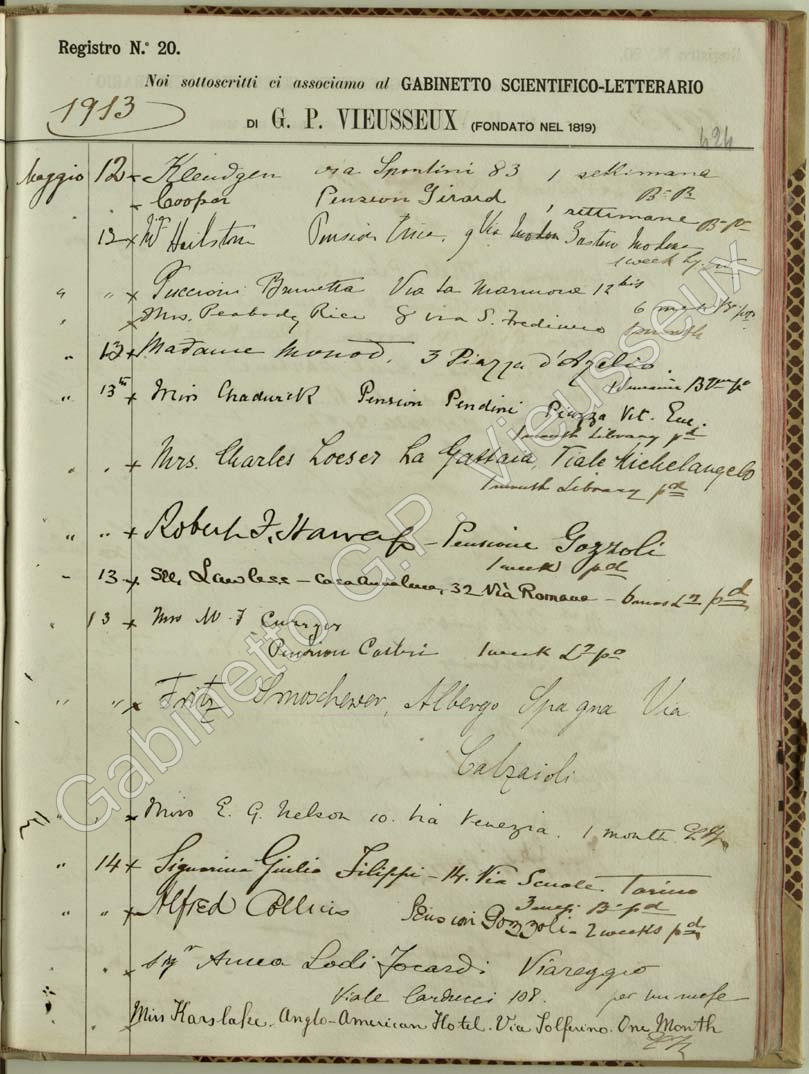 Registro N.º 20.
Noi sottoscritti ci associamo al GABINETTO SCIENTIFICO-LETTERARIO
1913
DI G. P. VIEUSSEUX (FONDATO NEL 1819)
424
Maggio 12 x Kleudgen via Spontini 83 1 settimana
" x Cooper Pension Girard Bº Pº
1 settimane Bº pº
12 x Mr Hailstone Pension 9 Via Gustavo Modena
1 week
" " x Puccioni Brunetta Via La Marmora 12 bis
x Mrs. Peabody Rice 8 via S. Frediano 6 mesi
" 13 x Madame Monod, 3 Piazza d'Azelio.
" 13th x Miss Chadwick Pension Pendini Piazza Vit. Em.
1 month Library pd
" " x Mrs. Charles Loeser La Gattaia, Viale Michelangelo
1 month Library pd
" " x Robert F. - Pensione Gozzoli
1 week pd
- 13 x Lawless - Casa Annalena, 32 Via Romana - 6 mos Lº pd
13 x Mrs W. F.
Pension Castri 1 week Lº pº
" " x Fritz Smoschewer, Albergo Spagna Via
Calzaioli
" " x Miss E. G. Nelson 10. Via Venezia. 1 month
" 14 x Signorina Giulia Filippi - 14. Via Scuole. Torino
3 mesi Bº pd
" " x Alfred Collins Pension Gozzoli - 2 weeks pd
" x Anna Lodi Focardi Viareggio
Viale Carducci 108. per un mese
Miss Karslake. Anglo-American Hotel. Via Solferino. One Month
Gabinetto G.P. Vieusseux